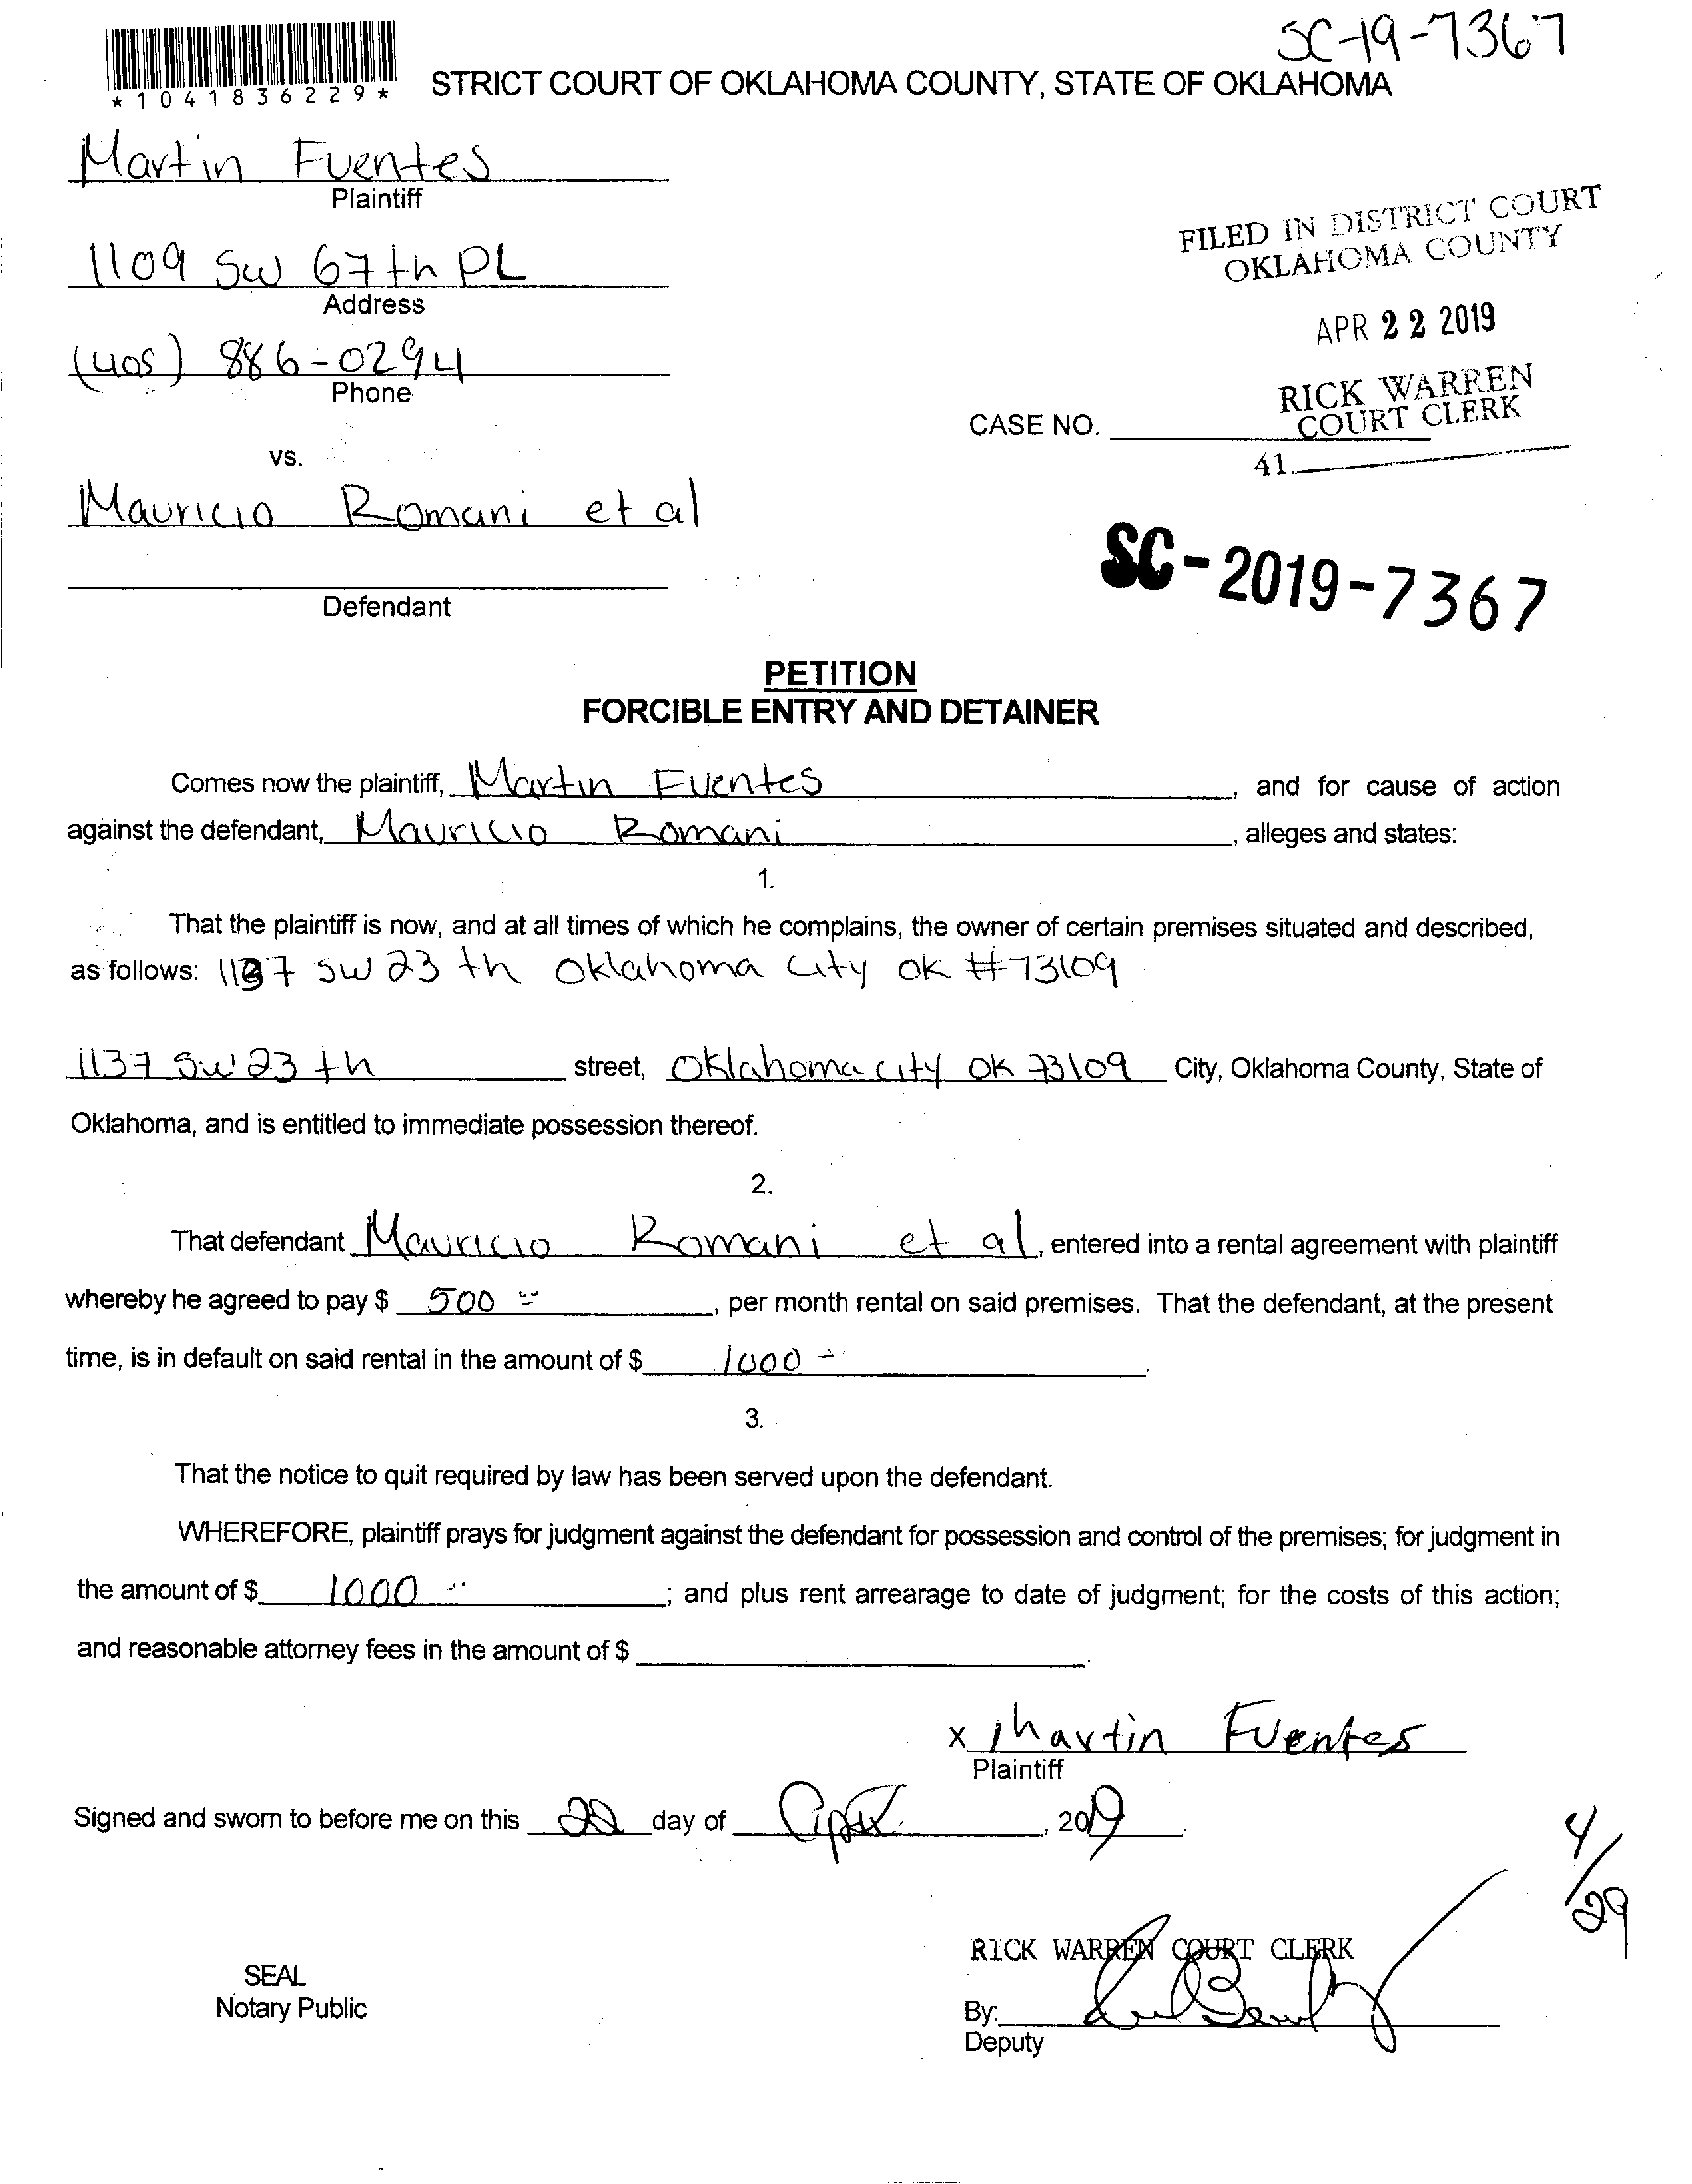 SC-19-7367
*1041836229*
STRICT COURT OF OKLAHOMA COUNTY, STATE OF OKLAHOMA
Martin Fuentes
Plaintiff
1109 SW 67th PL
Address
(405) 886-0294
Phone
FILED IN DISTRICT COURT
OKLAHOMA COUNTY
APR 22 2019
RICK WARREN
COURT CLERK
CASE NO.
41
vs.
Mauricio Romani et al
Defendant
SC-2019-7367
PETITION
FORCIBLE ENTRY AND DETAINER
Comes now the plaintiff, Martin Fuentes, and for cause of action
against the defendant, Mauricio Romani, alleges and states:
1.
That the plaintiff is now, and at all times of which he complains, the owner of certain premises situated and described,
as follows: 1137 SW 23 th Oklahoma City OK #73109
1137 SW 23 th street, Oklahoma City OK 73109 City, Oklahoma County, State of
Oklahoma, and is entitled to immediate possession thereof.
2.
That defendant Mauricio Romani et al, entered into a rental agreement with plaintiff
whereby he agreed to pay $ 500, per month rental on said premises. That the defendant, at the present
time, is in default on said rental in the amount of $ 1000.
3.
That the notice to quit required by law has been served upon the defendant.
WHEREFORE, plaintiff prays for judgment against the defendant for possession and control of the premises; for judgment in
the amount of $ 1000; and plus rent arrearage to date of judgment; for the costs of this action;
and reasonable attorney fees in the amount of $.
x Martin Fuentes
Plaintiff
Signed and sworn to before me on this 22 day of April, 2019.
4/29
RICK WARREN COURT CLERK
SEAL
Notary Public
By:
Deputy